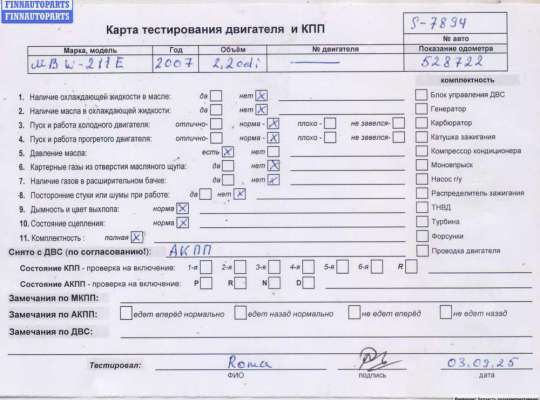 FINNAUTOPARTS
FINNAUTOPARTS
Карта тестирования двигателя и КПП
S-7894
№ авто
Марка, модель Год Объём № двигателя Показание одометра
MB W-211E 2007 2,2cdi — 528722
комплектность
1. Наличие охлаждающей жидкости в масле: да нет X
2. Наличие масла в охлаждающей жидкости: да нет X
3. Пуск и работа холодного двигателя: отлично- норма - X плохо - не завелся-
4. Пуск и работа прогретого двигателя: отлично- норма - X плохо - не завелся-
5. Давление масла: есть X нет
6. Картерные газы из отверстия масляного щупа: да нет X
7. Наличие газов в расширительном бачке: да нет X
8. Посторонние стуки или шумы при работе: да нет X
9. Дымность и цвет выхлопа: норма X
10. Состояние сцепления: норма X
11. Комплектность : полная X
Блок управления ДВС
Генератор
Карбюратор
Катушка зажигания
Компрессор кондиционера
Моновпрыск
Насос г/у
Распределитель зажигания
ТНВД
Турбина
Форсунки
Проводка двигателя
Снято с ДВС (по согласованию!): АКПП
Состояние КПП - проверка на включение: 1-я 2-я 3-я 4-я 5-я 6-я R
Состояние АКПП - проверка на включение: P R N D
Замечания по МКПП:
Замечания по АКПП: едет вперёд нормально едет назад нормально не едет вперёд не едет назад
Замечания по ДВС:
Тестировал: Roma 03.09.25
ФИО подпись дата